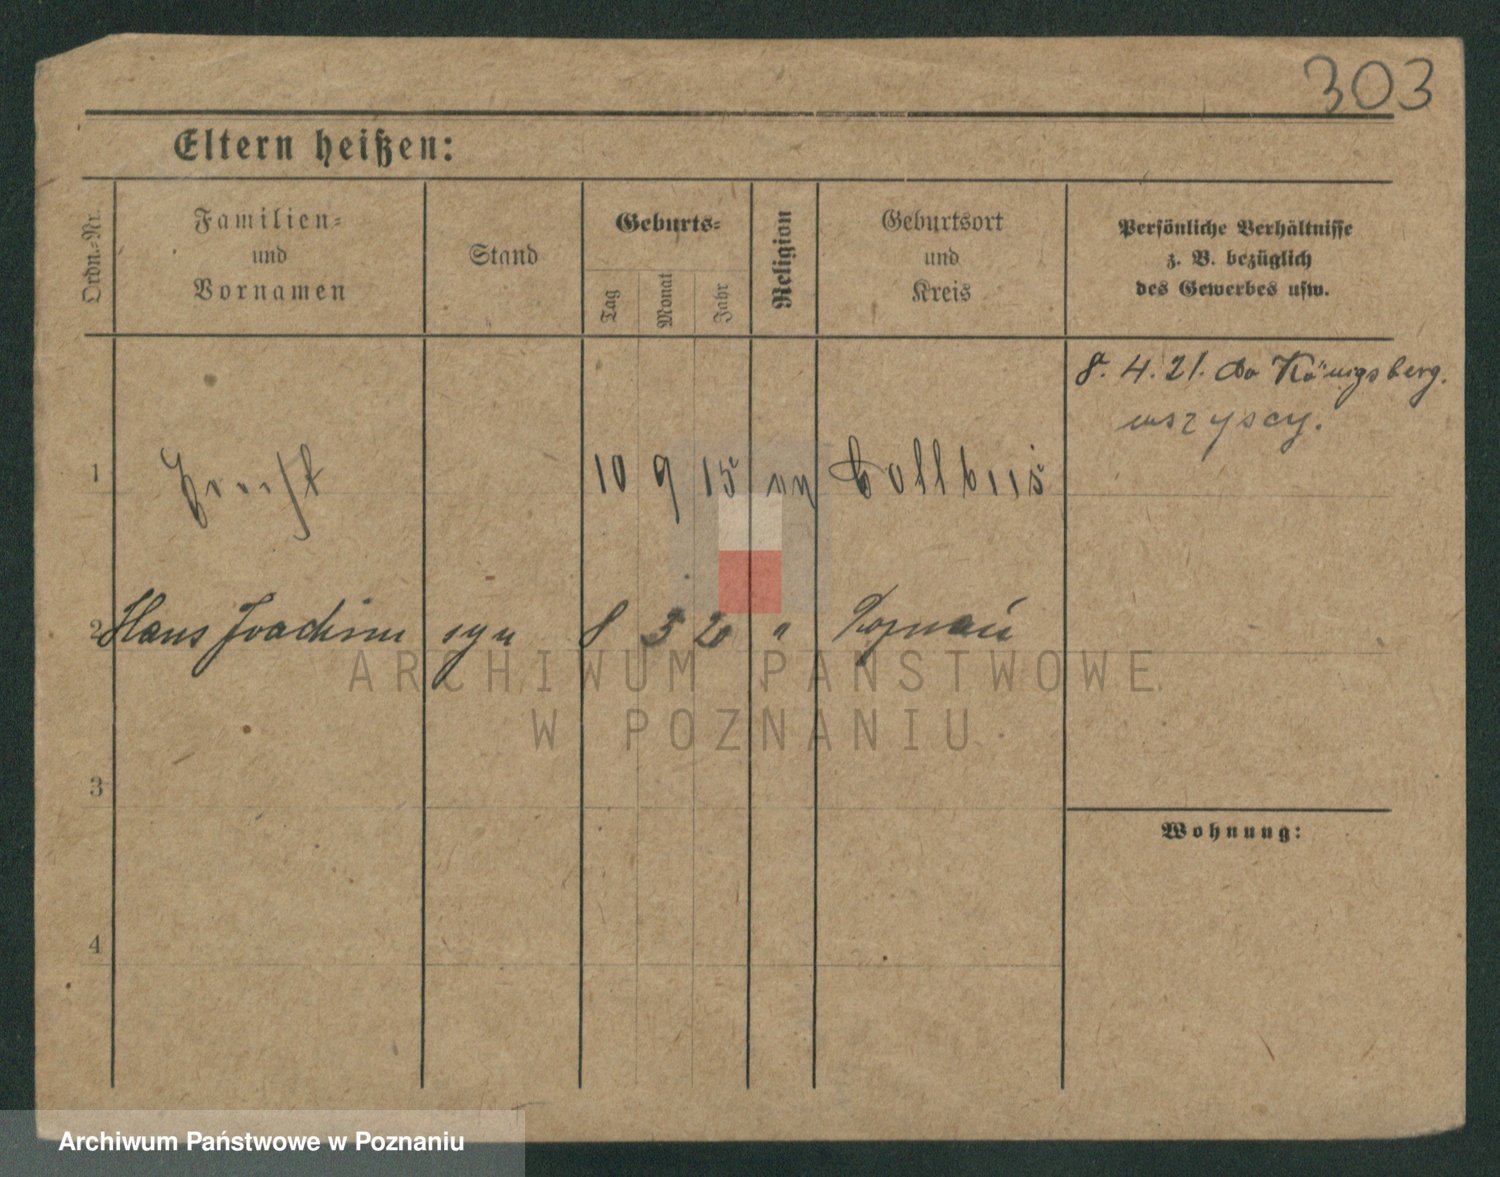 303
Eltern heißen:
Ordn.-Nr.
Familien-
und
Vornamen
Stand
Geburts-
Tag
Monat
Jahr
Religion
Geburtsort
und
Kreis
Persönliche Verhältnisse
z. B. bezüglich
des Gewerbes usw.
8. 4. 21. do Königsberg.
wszyscy.
1 10 9 15
2 Hans Joachim syn 8 3 20 " Poznań
ARCHIWUM PAŃSTWOWE
W POZNANIU
3
Wohnung:
4
Archiwum Państwowe w Poznaniu